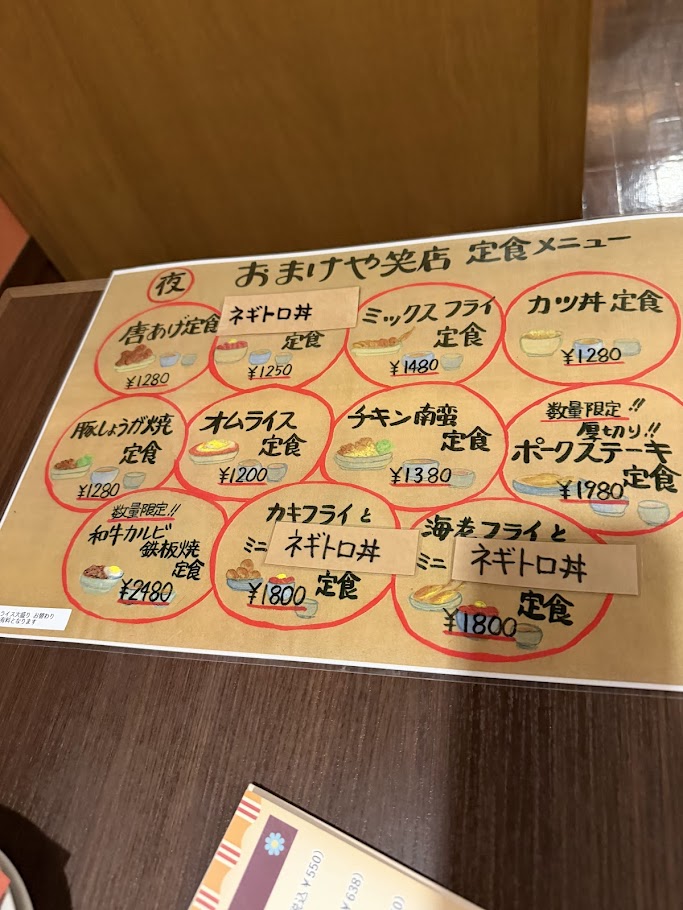 夜
おまけや笑店 定食メニュー
唐あげ定食
¥1280
ネギトロ丼
定食
¥1250
ミックスフライ
定食
¥1480
カツ丼定食
¥1280
豚しょうが焼
定食
¥1280
オムライス
定食
¥1200
チキン南蛮
定食
¥1380
数量限定!!
厚切り!!
ポークステーキ
定食
¥1980
数量限定!!
和牛カルビ
鉄板焼
定食
¥2480
カキフライと
ミニ ネギトロ丼
定食
¥1800
海老フライと
ミニ ネギトロ丼
定食
¥1800
ライス大盛り お替わり
有料となります
税込¥550)
¥638)